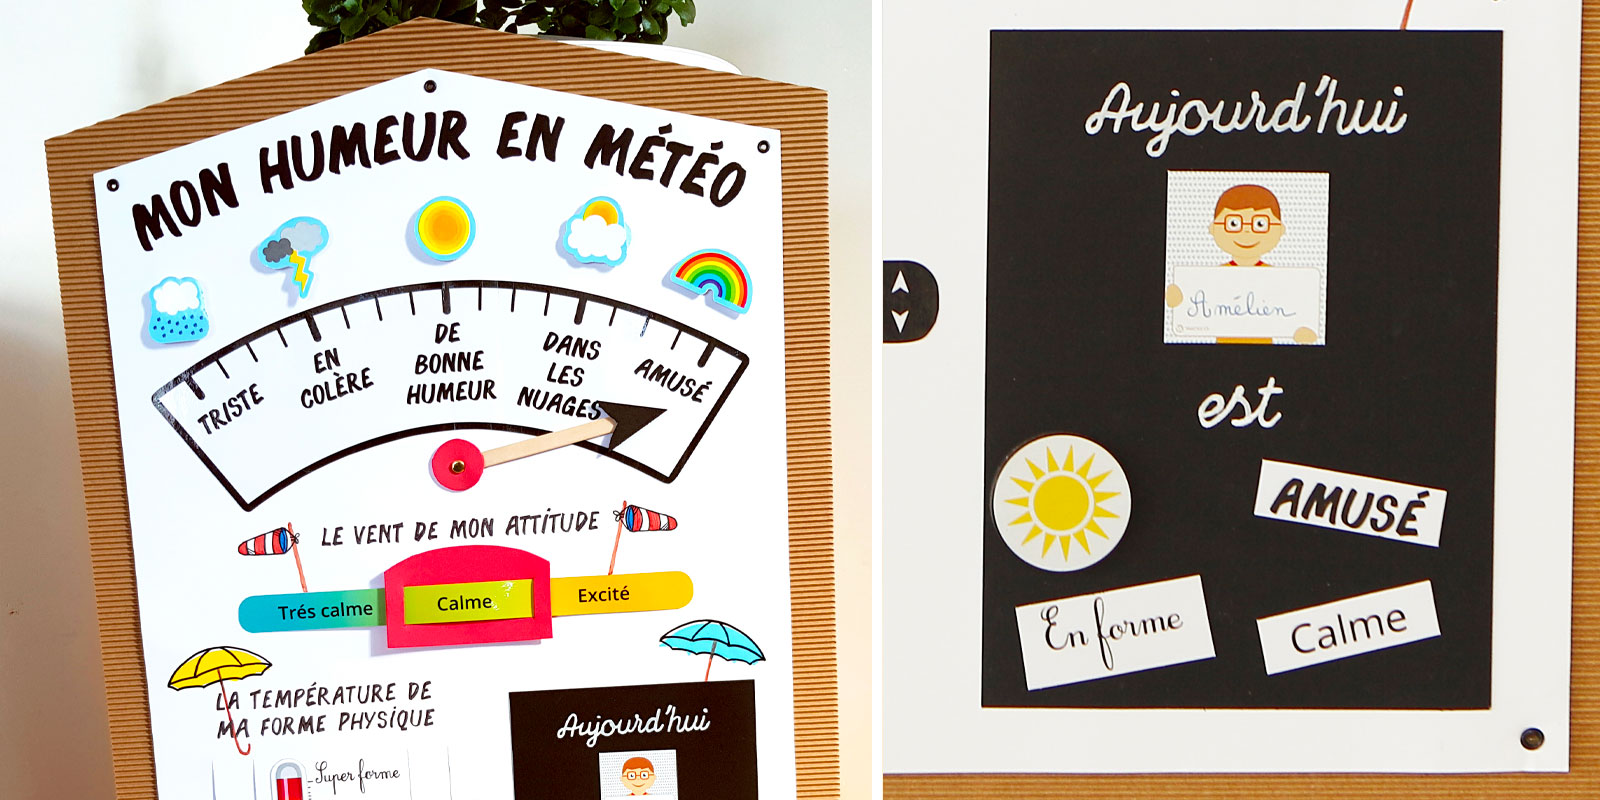 MON HUMEUR EN MÉTÉO
TRISTE
EN
COLÈRE
DE
BONNE
HUMEUR
DANS
LES
NUAGES
AMUSÉ
LE VENT DE MON ATTITUDE
Trés calme
Calme
Excité
LA TEMPÉRATURE DE
MA FORME PHYSIQUE
Super forme
Aujourd'hui
Aujourd'hui
Amélien
est
AMUSÉ
En forme
Calme